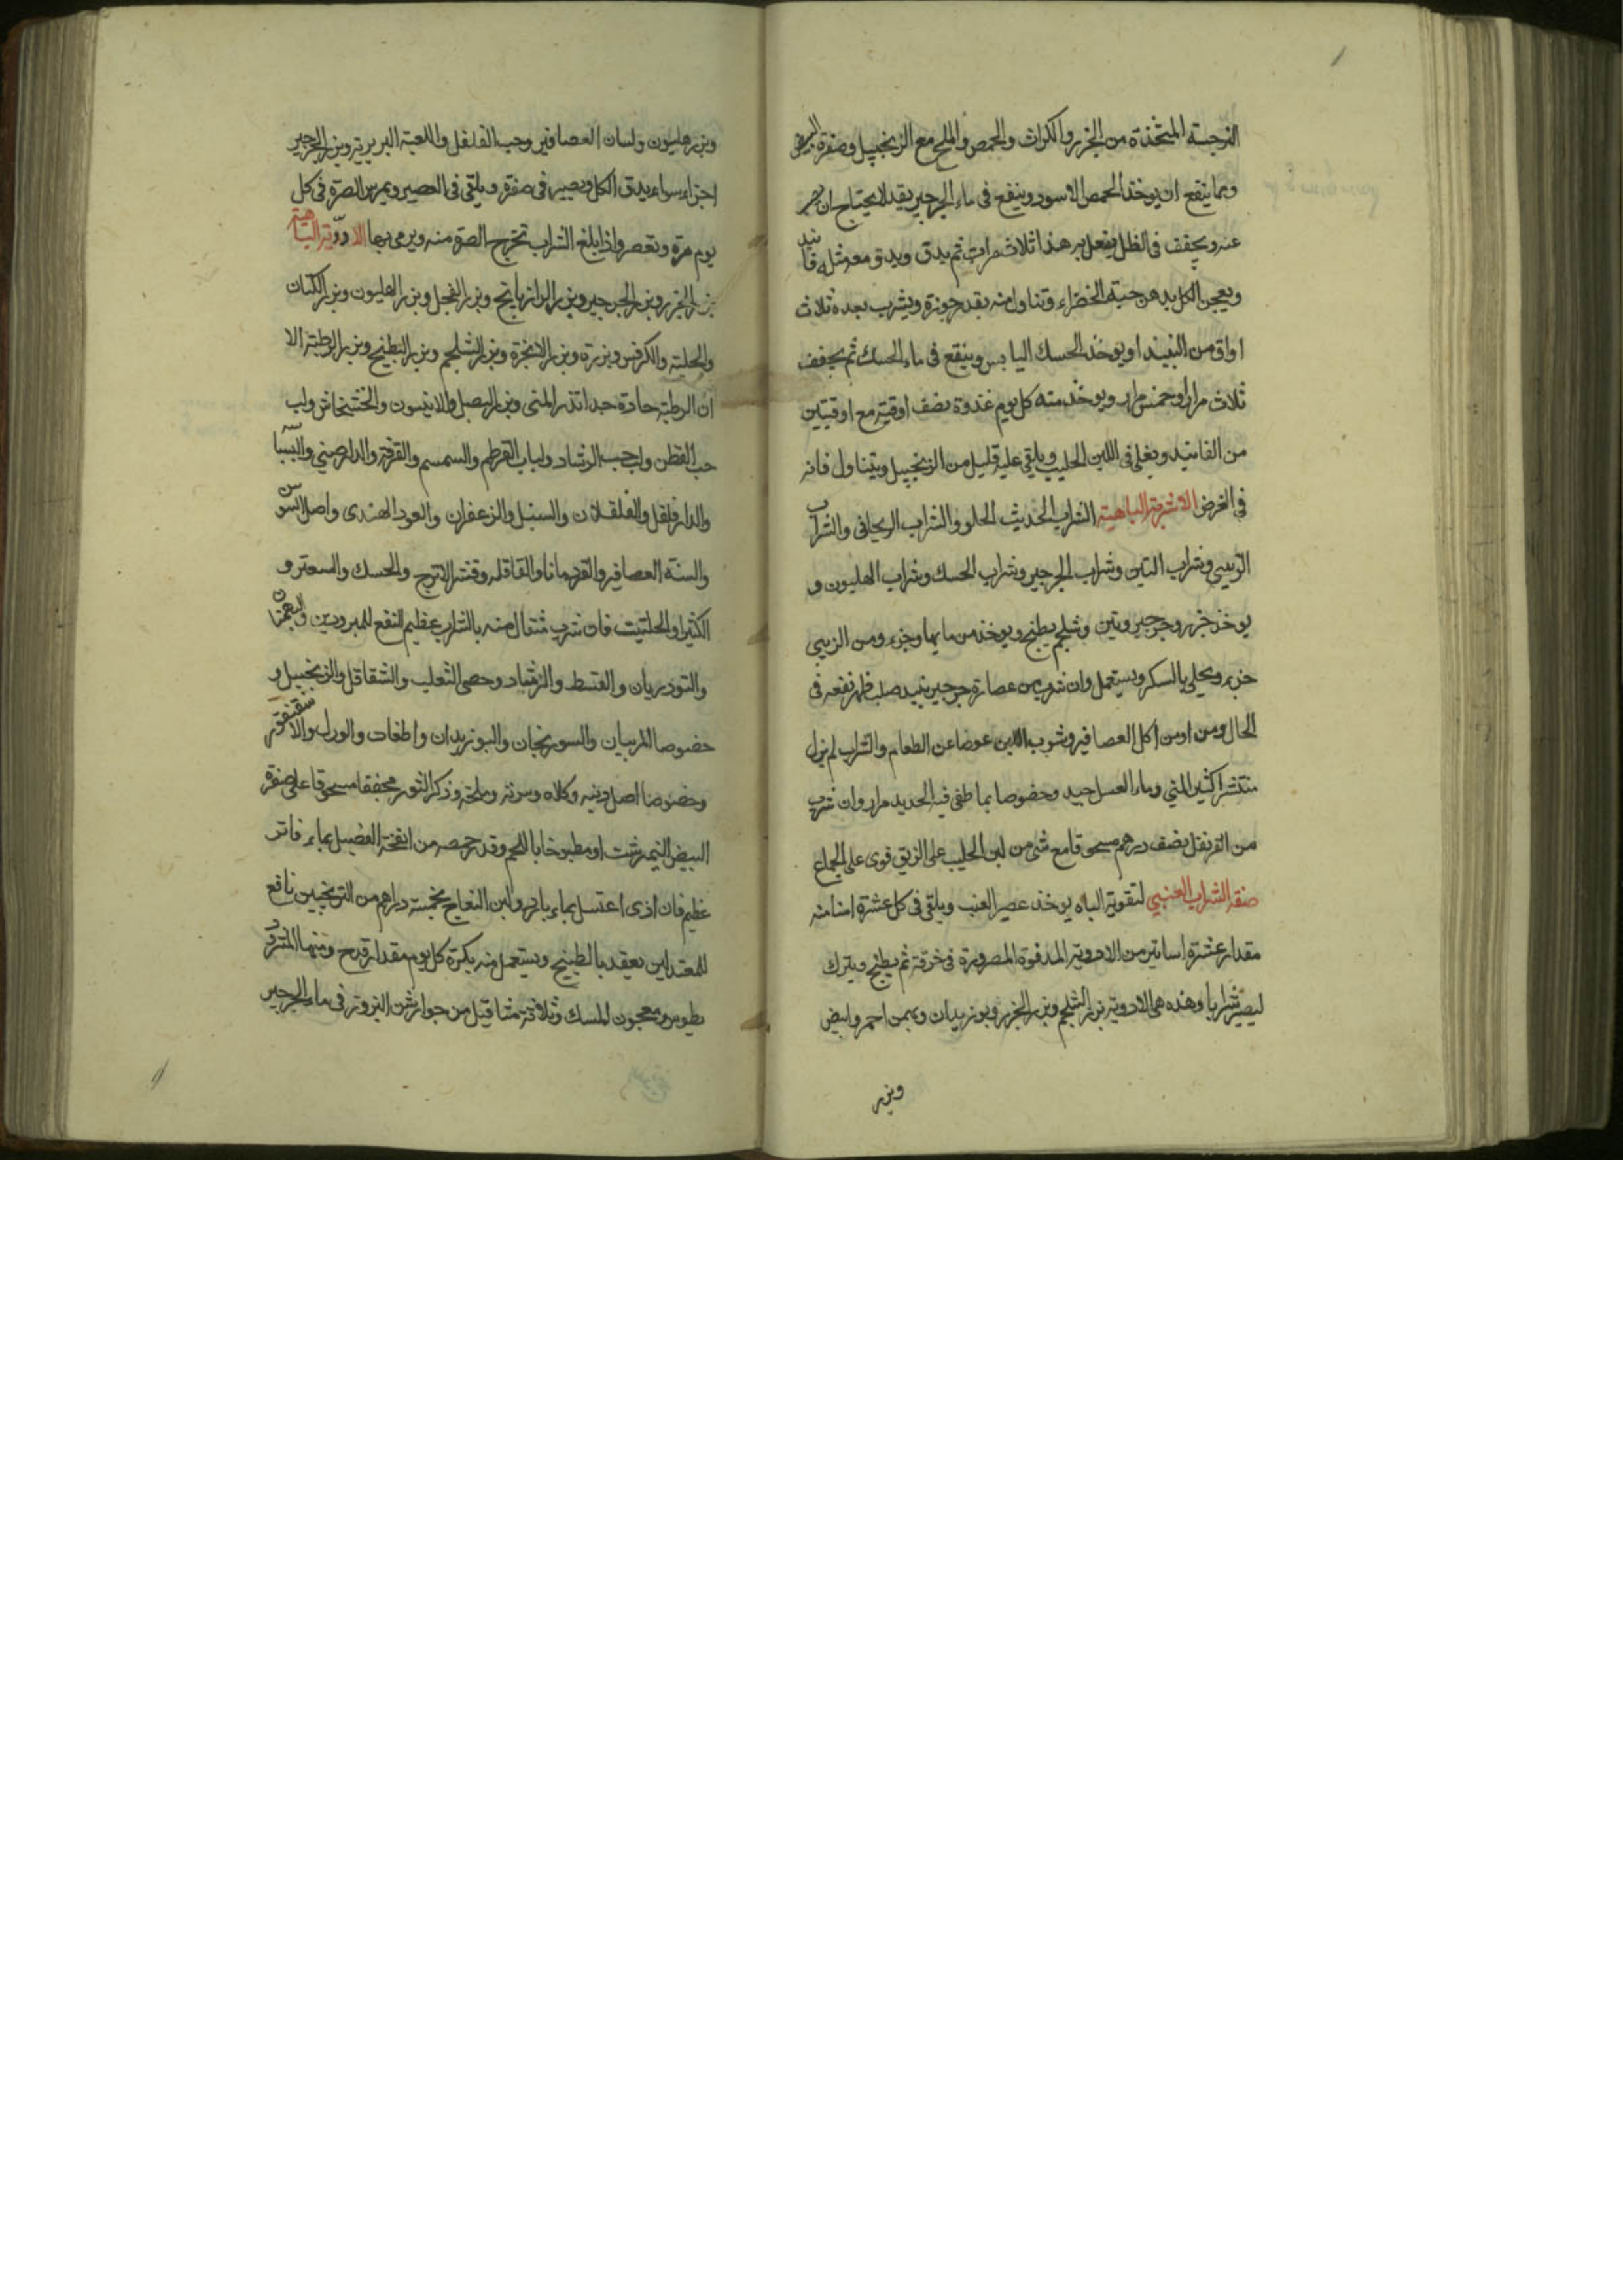 النرجسية المتخذة من الجزر والكراث والحمص والملح مع الزنجبيل وصفرة البيض
ومما ينفع ان يوخذ الحمص الاسود وينقع فى ماء الجرجير بقدر لا يحتاج ان
عنه ويجفف فى الظل يفعل به هذا ثلاث مرات ثم يدق ويدق معه مثله فانيد
ويعجن الكل بدهن حبة الخضراء وتناول منه بقدر جوزة ويشرب بعده ثلاث
اواق من النبيذ او يوخذ الحسك اليابس وينقع فى ماء الحسك ثم يجفف
ثلاث مرار او خمس مرار ويوخذ منه كل يوم غدوة نصف اوقية مع اوقيتين
من الفانيد ويغلى فى اللبن الحليب ويلقى عليه قليل من الزنجبيل ويتناول فانه
فى الغرض الاشربة الباهية الشراب الحديث الحلو والشراب الريحانى والشراب
الزبيبى وشراب التين وشراب الجرجير وشراب الحسك وشراب الهليون و
يوخذ جزر وجرجير وتين وشلجم يطبخ ويوخذ من مايها وجزء ومن الزبيب
جزء ويحلى بالسكر ويستعمل وان شرب من عصارة جرجير بنبيذ صلب ظهر نفعه فى
الحال ومن ادمن اكل العصافير وشرب اللبن عوضا عن الطعام والشراب لم يزل
منتشرا كثير المنى وماء العسل جيد وخصوصا بما طفى فيه الحديد مرار وان شرب
من القرنفل نصف درهم مسحوقا مع شى من لبن الحليب على الريق قوى على الجماع
صفة الشراب العنبى لتقوية الباه يوخذ عصير العنب ويلقى فى كل عشرة امنا منه
مقدار عشرة اساتير من الادوية المدقوقة المصرورة فى خرقة ثم يطبخ ويترك
ليصير شرابا وهذه هى الادوية بزر الشلجم وبزر الجزر وبوزيدان وبهمن احمر وابيض
وبزر
وبزر هليون ولسان العصافير وحب الفلفل واللعبة البربرية وبزر الجرجير
اجزاء سواء يدق الكل ويصير فى صفرة ويلقى فى العصير ويمرس الصرة فى كل
يوم مرة وتعصر واذا بلغ الشراب تخرج الصرة منه ويرمى بها الادوية الباهية
بزر الجزر وبزر الجرجير وبزر الرازيانج وبزر الفجل وبزر الهليون وبزر الكتان
والحلبة والكرفس وبزره وبزر الانجرة وبزر الشلجم وبزر البطيخ وبزر الرطبة الا
ان الرطبة حادة جدا تدر المنى وبزر البصل والانيسون والخشخاش ولب
حب القطن ولب حب الرشاد ولباب القرطم والسمسم والقرفة والدارصينى والبسباسه
والدارفلفل والفلفلان والسنبل والزعفران والعود الهندى واصل السوسن
والسنة العصافير والقردمانا والقاقله وقشر الاترج والحسك والسعتر و
الكثيرا والحلتيت فان شرب مثقال منه بالشراب عظيم النفع للمبرودين والبهمنان
والتودريان والقسط والرشاد وخصى الثعلب والشقاقل والزنجبيل و
خصوصا المربيان والسورنجان والبوزيدان واظفات والورل والاسقنقور
وخصوصا اصل ذنبه وكلاه وسرته وملحه وذكر الثور مجففا مسحوقا على صفرة
البيض النيمرشت او مطبوخا باللحم وقدر حمصه من انفخة الفصيل بماء فاتر
عظيم فان اذى اغتسل بماء بارد ولبن النعاج بخمسة دراهم من الترنجبين نافع
للمعتدلين يعقد بالطبيخ ويستعمل منه بكرة كل يوم مقدار قدح ومنها المثروديـ
طوس ومعجون المسك وثلاثة مثاقيل من جوارشن البزور فى ماء الجرجير